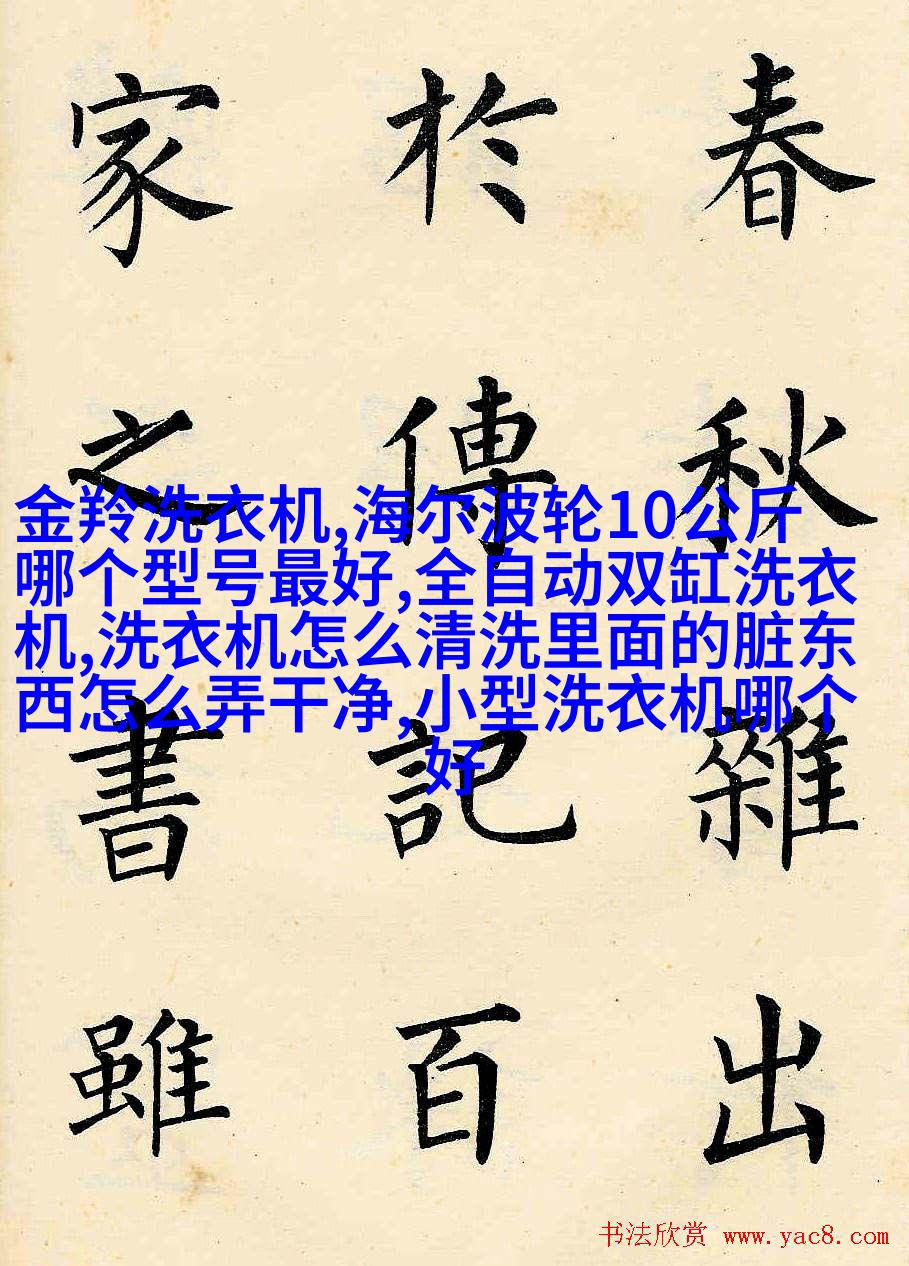 春秋雜出
於傳記百
家之書雖
金羚洗衣机,海尔波轮10公斤
哪个型号最好,全自动双缸洗衣
机,洗衣机怎么清洗里面的脏东
西怎么弄干净,小型洗衣机哪个
好
书法欣赏 www.yac8.com